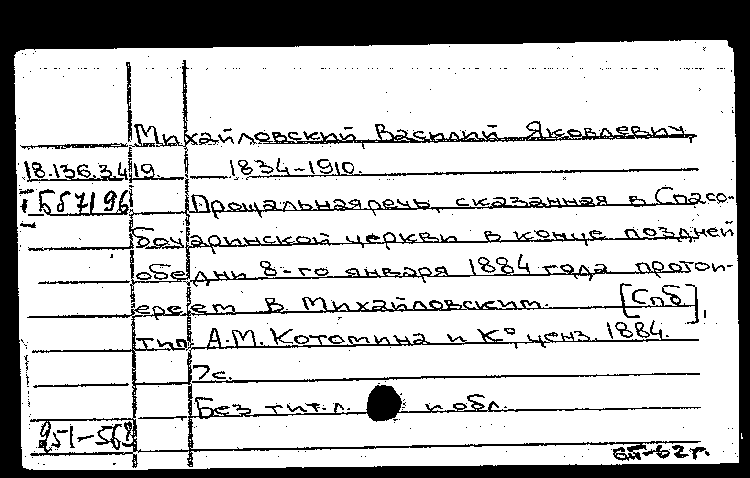 Михайловский, Василий Яковлевич,
18.136.3.419. 1834-1910.
Б67/96 Прощальная речь, сказанная в Спасо-
бочаринской церкви в конце поздней
обедни 8-го января 1884 года протои-
ереем В Михайловским. [Спб],
тип А.М. Котомина и К°, ценз. 1884.
7с.
Без тит.л. и обл.
251-568
62г.